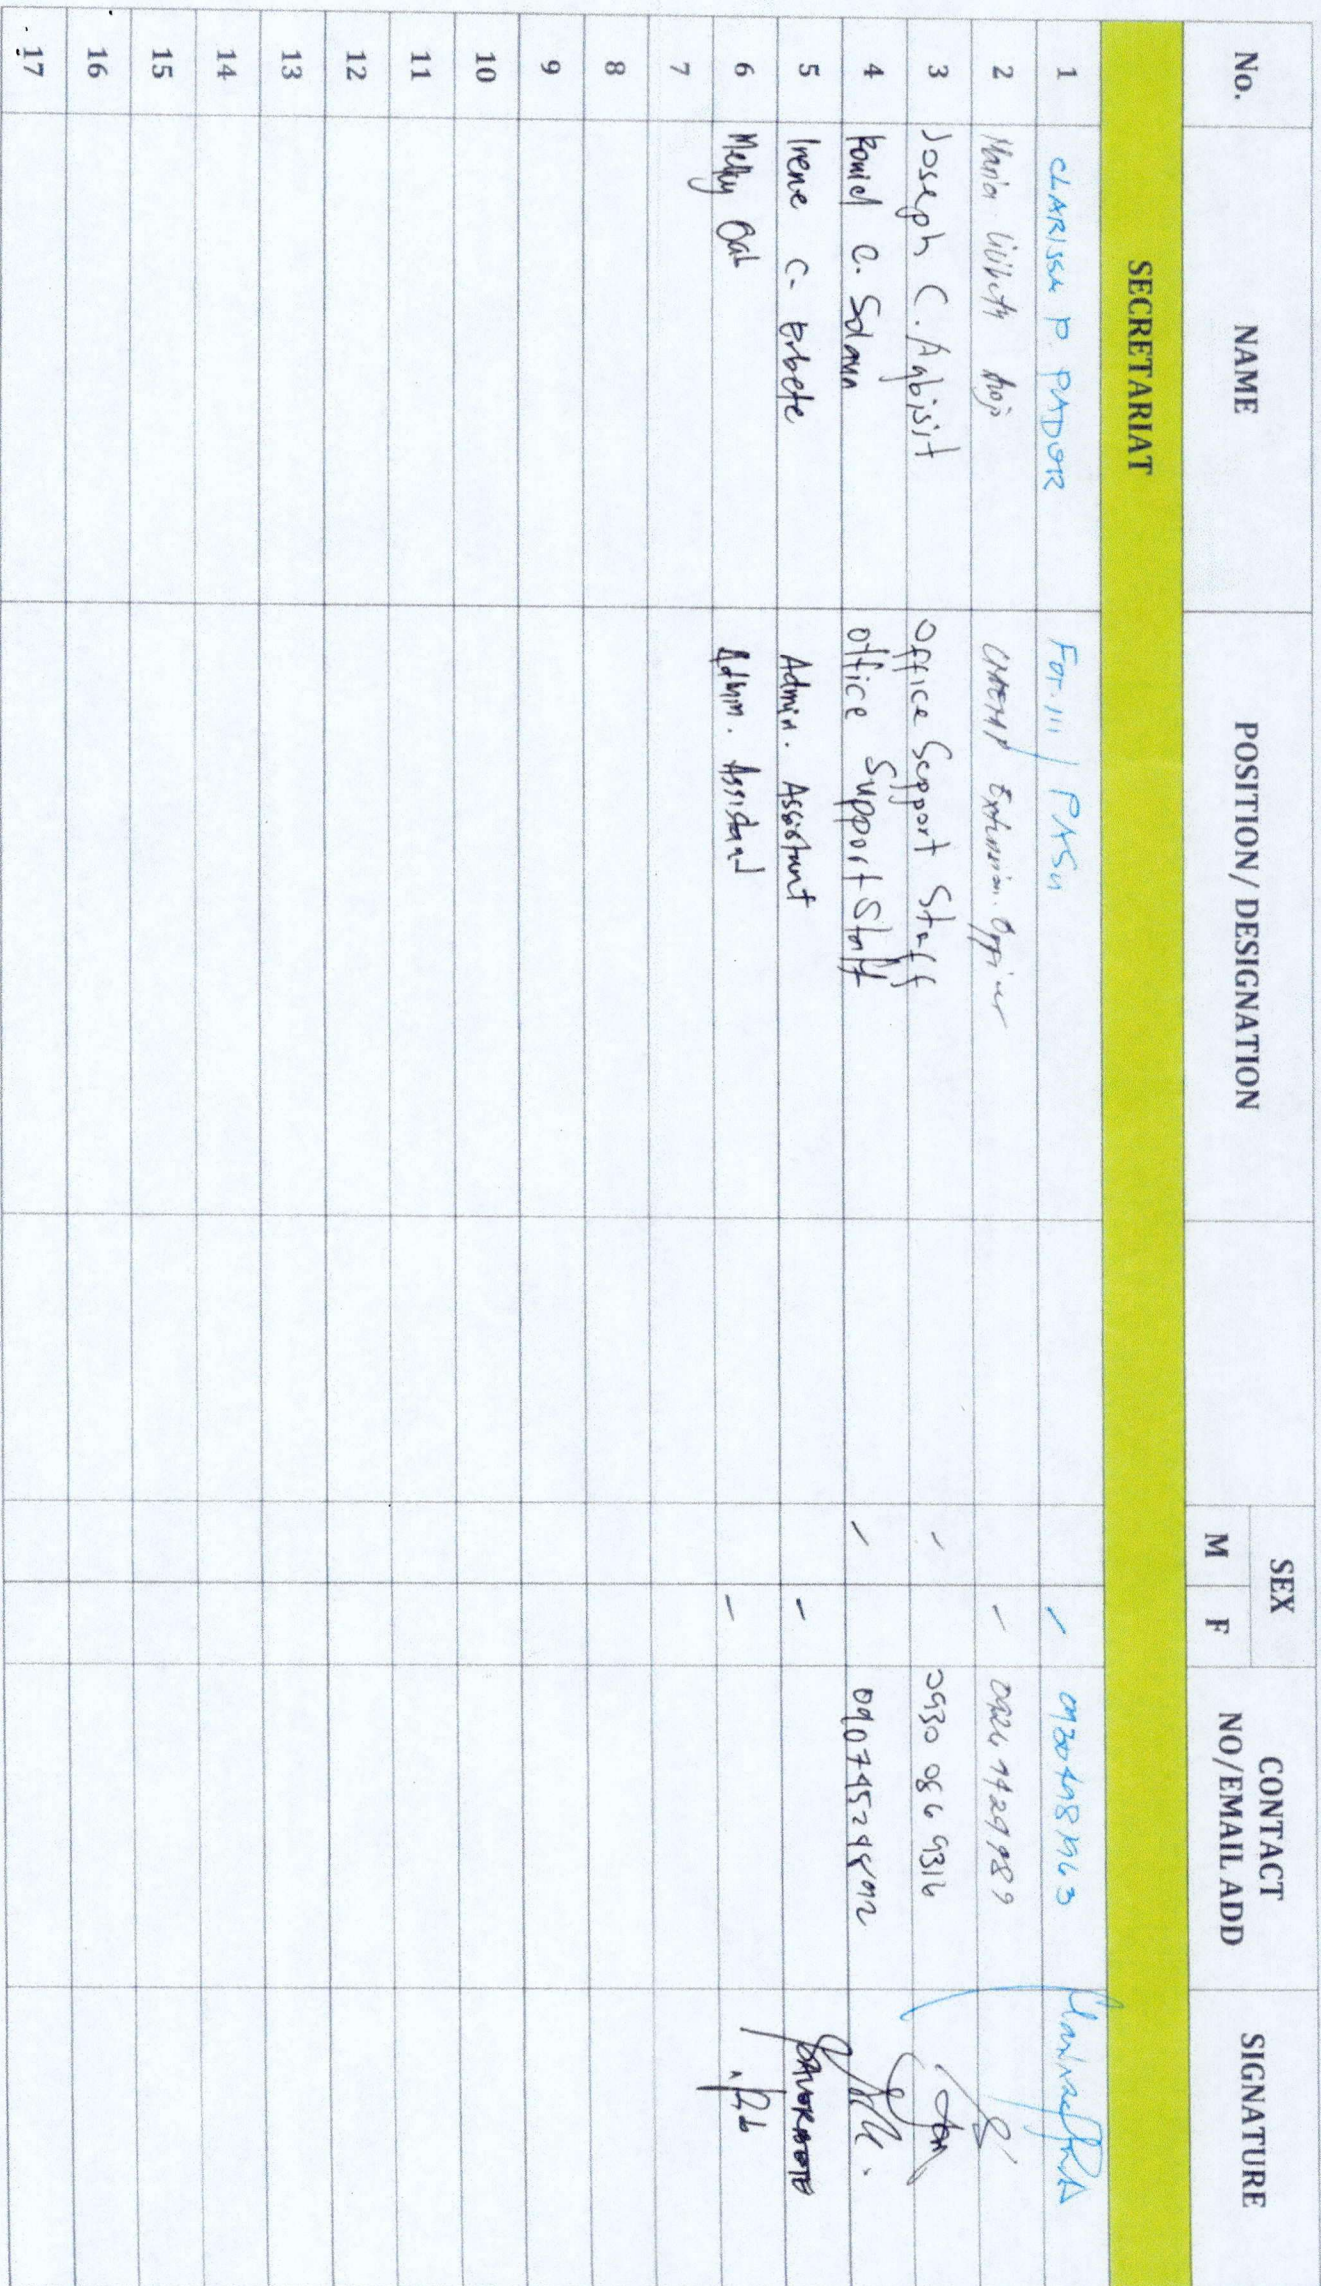 No. NAME POSITION/ DESIGNATION SEX CONTACT NO/EMAIL ADD SIGNATURE
M F
SECRETARIAT
1 CLARISSA P. PADOR For. III / PASu / 09304981963
2 Maria Lilibeth Extension Officer /
3 Joseph C. Agbisit Office Support Staff / 0930 086 9316
4 C. Solana office Support Staff /
5 Irene C. Erbete Admin. Assistant /
6 Admin. Assistant /
7
8
9
10
11
12
13
14
15
16
17